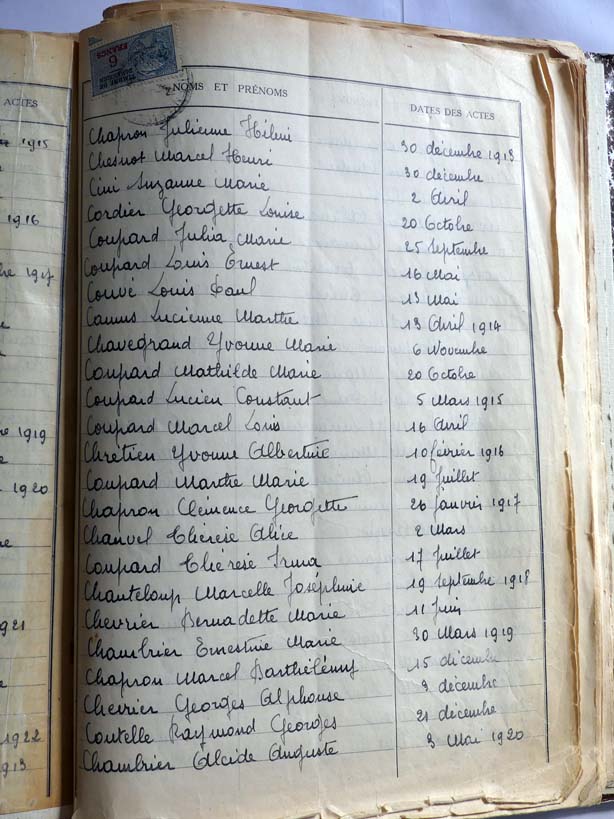 ACTES
1915
1916
1917
1919
1920
1921
1922
1913
6
FRANCS
NOMS ET PRÉNOMS DATES DES ACTES
Chapron Julienne Hélène 30 décembre 1913
Chesnot Marcel Henri 30 décembre
Cini Suzanne Marie 2 Avril
Cordier Georgette Louise 20 Octobre
Coupard Julia Marie 25 Septembre
Coupard Louis Ernest 16 Mai
Couvé Louis Paul 13 Mai
Camus Lucienne Marthe 13 Avril 1914
Chavegrand Yvonne Marie 6 Novembre
Coupard Mathilde Marie 20 Octobre
Coupard Lucien Constant 5 Mars 1915
Coupard Marcel Louis 16 Avril
Chrétien Yvonne Albertine 10 février 1916
Coupard Marthe Marie 19 Juillet
Chapron Clémence Georgette 26 janvier 1917
Chanvel Thérèse Alice 2 Mars
Coupard Thérèse Irma 17 Juillet
Chanteloup Marcelle Joséphine 19 Septembre 1918
Chevrier Bernadette Marie 11 Juin
Chambrier Ernestine Marie 30 Mars 1919
Chapron Marcel Barthélémy 15 décembre
Chevrier Georges Alphonse 9 décembre
Coutelle Raymond Georges 21 décembre
Chambrier Alcide Auguste 3 Mai 1920